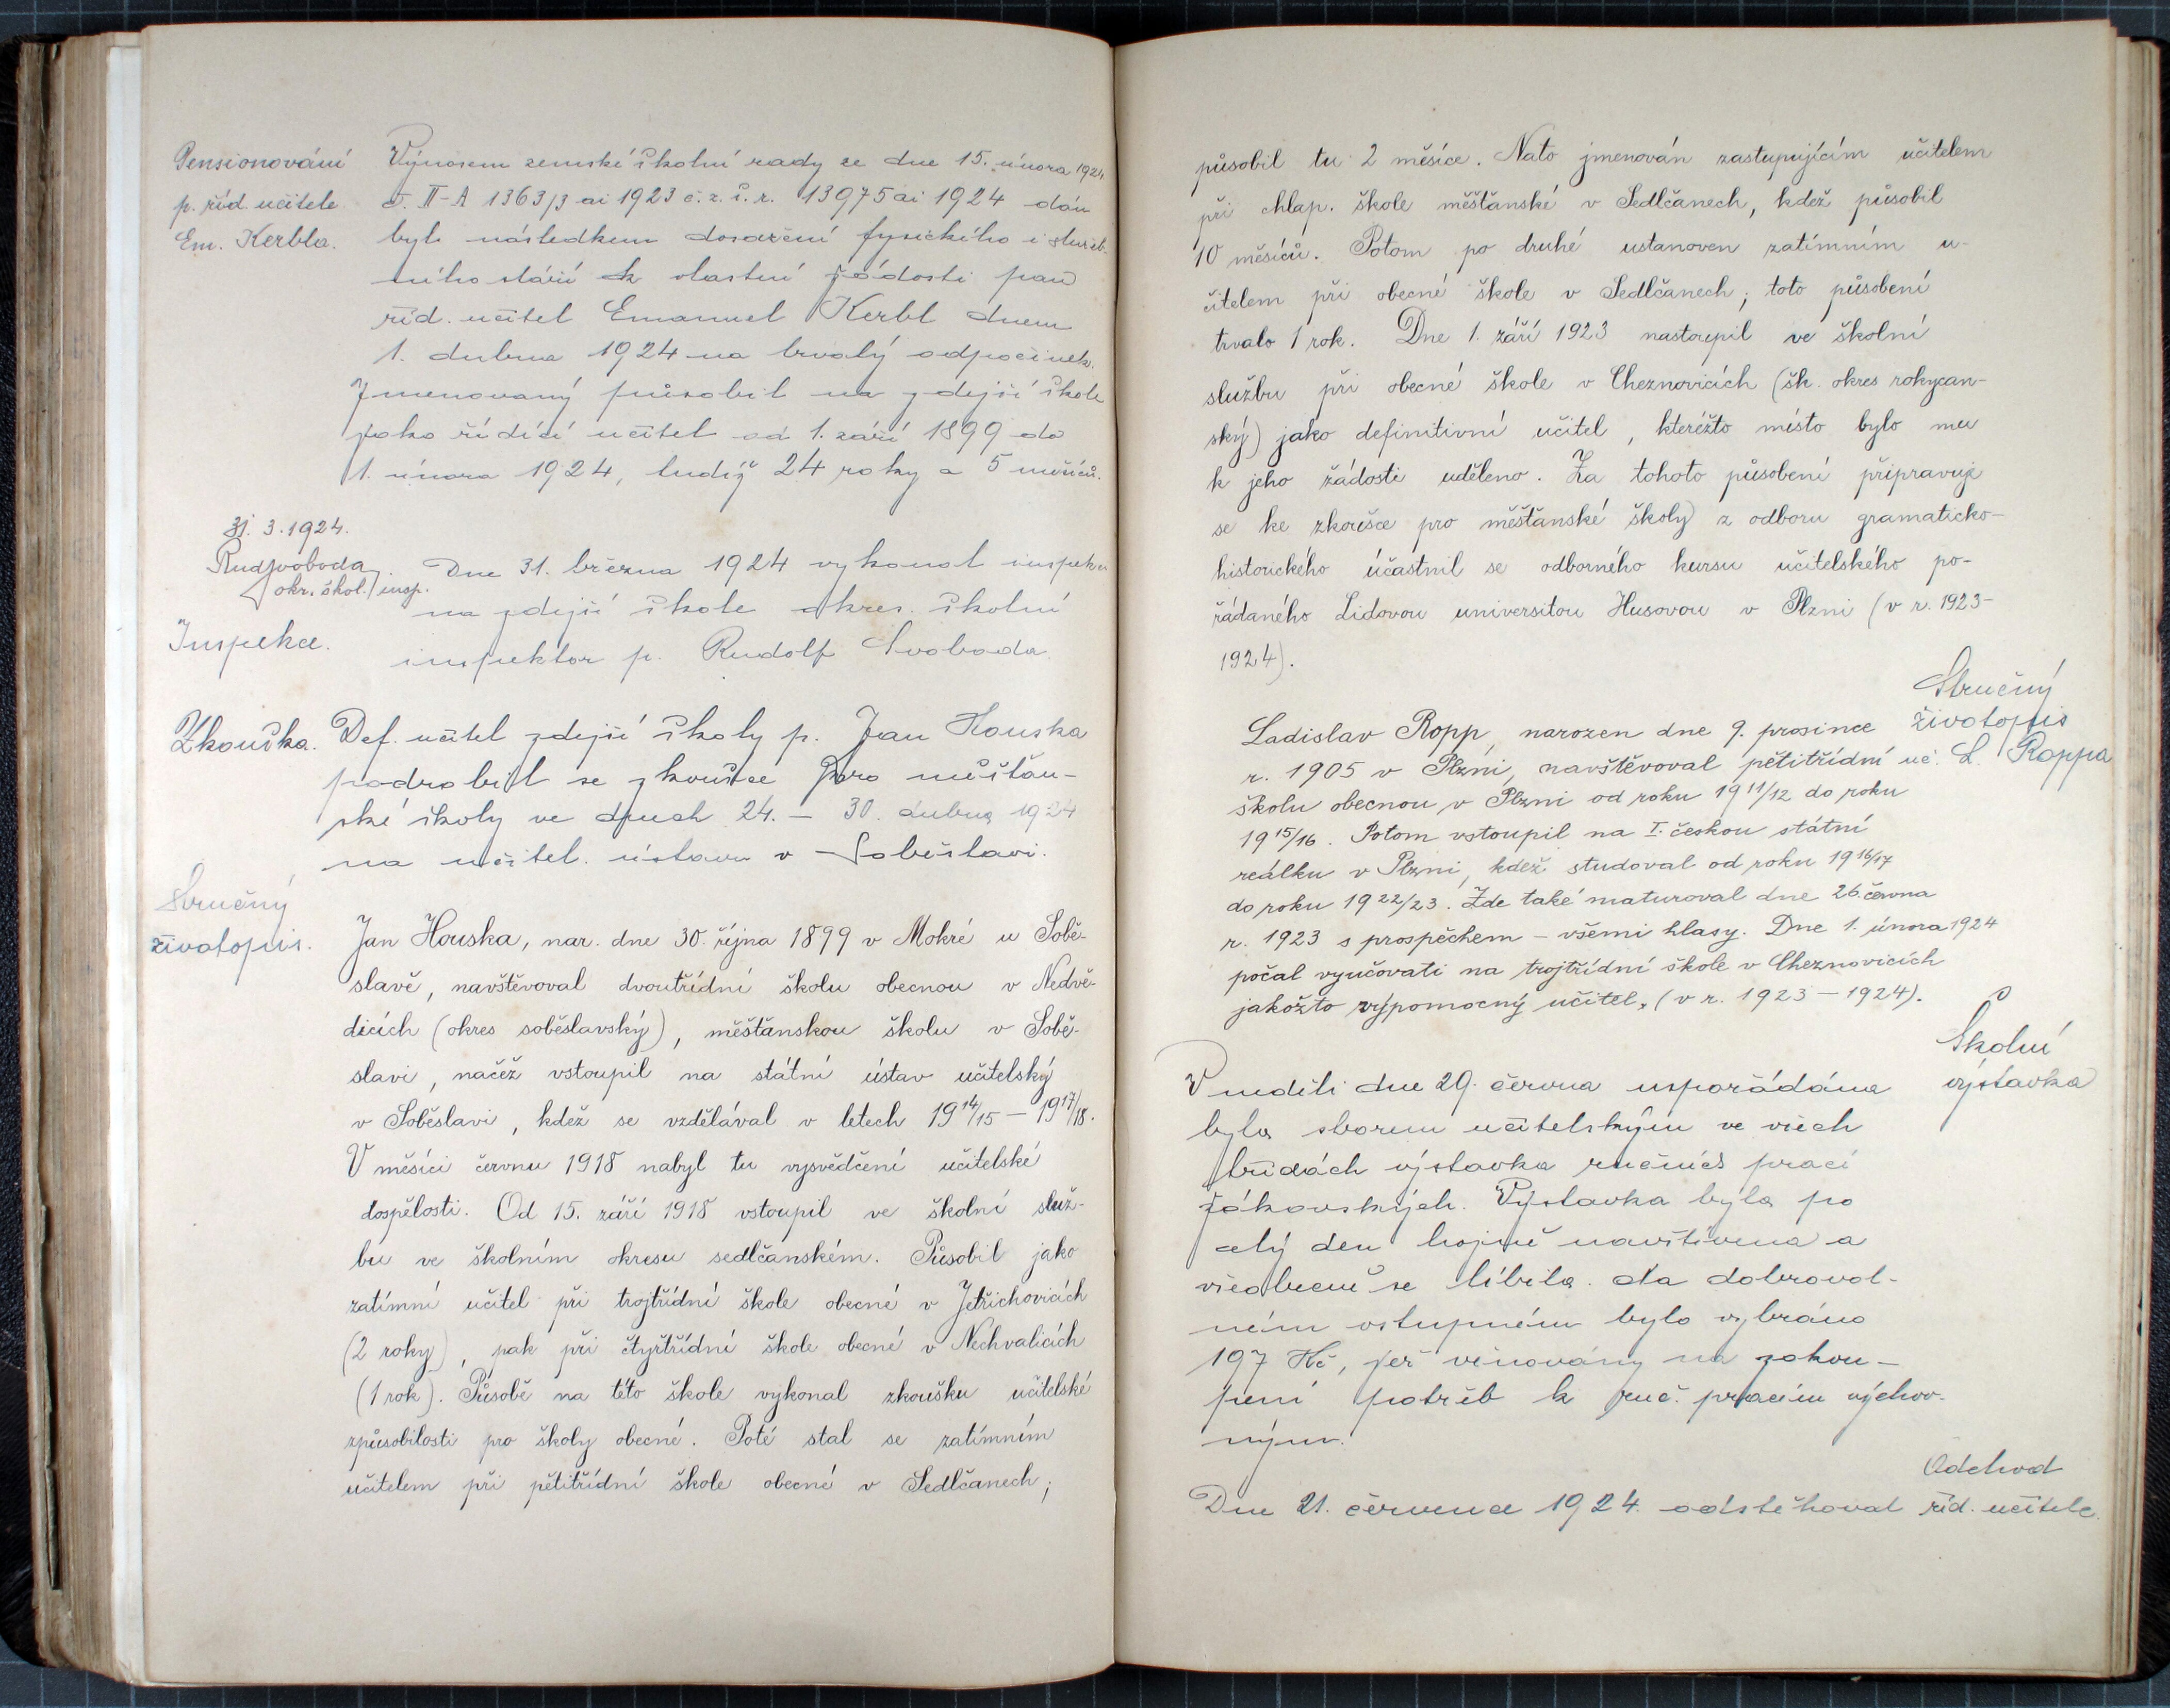 Pensionování
p. říd. učitele
Em. Kerbla.
Výnosem zemské školní rady ze dne 15. února 1924
č. II-A 1363/3 ai 1923 č. z. š. r. 13975 ai 1924 dán
byl následkem dosažení fysického i služeb-
ního stáří k vlastní žádosti pan
říd. učitel Emanuel Kerbl dnem
1. dubna 1924 na trvalý odpočinek.
Jmenovaný působil na zdejší škole
jako řídící učitel od 1. září 1899 do
1. února 1924, tudíž 24 roky a 5 měsíců.
31. 3. 1924.
RudSvoboda
okr. škol. insp.
Inspekce.
Dne 31. března 1924 vykonal inspekci
na zdejší škole okres. školní
inspektor p. Rudolf Svoboda.
Zkouška.
Def. učitel zdejší školy p. Jan Houska
podrobil se zkoušce pro měšťan-
ské školy ve dnech 24. – 30. dubna 1924
na učitel. ústavu v Soběslavi.
Stručný
životopis.
Jan Houska, nar. dne 30. října 1899 v Mokré u Sobě-
slavě, navštěvoval dvoutřídní školu obecnou v Nedvě-
dicích (okres soběslavský), měšťanskou školu v Sobě-
slavi, načež vstoupil na státní ústav učitelský
v Soběslavi, kdež se vzdělával v letech 1914/15 – 1917/18.
V měsíci červnu 1918 nabyl tu vysvědčení učitelské
dospělosti. Od 15. září 1918 vstoupil ve školní služ-
bu ve školním okresu sedlčanském. Působil jako
zatímní učitel při trojtřídní škole obecné v Jetřichovicích
(2 roky), pak při čtyřtřídní škole obecné v Nechvalicích
(1 rok). Působě na této škole vykonal zkoušku učitelské
způsobilosti pro školy obecné. Poté stal se zatímním
učitelem při pětitřídní škole obecné v Sedlčanech;
působil tu 2 měsíce. Nato jmenován zastupujícím učitelem
při chlap. škole měšťanské v Sedlčanech, kdež působil
10 měsíců. Potom po druhé ustanoven zatímním u-
čitelem při obecné škole v Sedlčanech; toto působení
trvalo 1 rok. Dne 1. září 1923 nastoupil ve školní
službu při obecné škole v Cheznovicích (šk. okres rokycan-
ský) jako definitivní učitel, kteréžto místo bylo mu
k jeho žádosti uděleno. Za tohoto působení připravuje
se ke zkoušce pro měšťanské školy z odboru gramaticko-
historického účastnil se odborného kursu učitelského po-
řádaného Lidovou universitou Husovou v Plzni (v r. 1923-
1924).
Stručný
životopis
uč. L. Roppa
Ladislav Ropp, narozen dne 9. prosince
r. 1905 v Plzni, navštěvoval pětitřídní
školu obecnou v Plzni od roku 1911/12 do roku
1915/16. Potom vstoupil na I. českou státní
reálku v Plzni, kdež studoval od roku 1916/17
do roku 1922/23. Zde také maturoval dne 26. června
r. 1923 s prospěchem – všemi hlasy. Dne 1. února 1924
počal vyučovati na trojtřídní škole v Cheznovicích
jakožto výpomocný učitel, (v r. 1923 – 1924).
Školní
výstavka
V neděli dne 29. června uspořádána
byla sborem učitelským ve všech
třídách výstavka ručních prací
žákovských. Výstavka byla po
celý den hojně navštívena a
všeobecně se líbila. Na dobrovol-
ném vstupném bylo vybráno
197 Kč, jež věnovány na zakou-
pení potřeb k ruč. pracím výchov-
ným.
Odchod
říd. učitele.
Dne 21. července 1924 odstěhoval